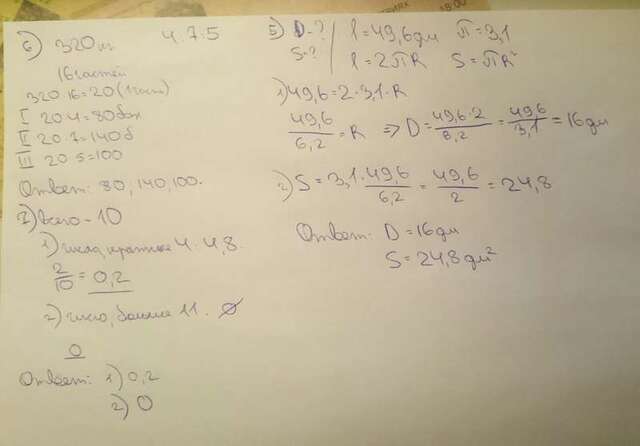 6) 320 кг 4:7:5
16 частей
320:16=20 (1 часть)
I 20·4=80
II 20·7=140
III 20·5=100
Ответ: 80, 140, 100.
7) Всего - 10
1) числа, кратные 4: 4,8.
2/10 = 0,2
2) число, больше 11: ∅
0
Ответ: 1) 0,2
2) 0
5) D-? l=49,6дм π=3,1
S-? l=2πR S=πR²
1) 49,6=2·3,1·R
49,6/6,2=R => D=49,6·2/6,2=49,6/3,1=16дм
2) S=3,1·49,6/6,2=49,6/2=24,8
Ответ: D=16дм
S=24,8дм²